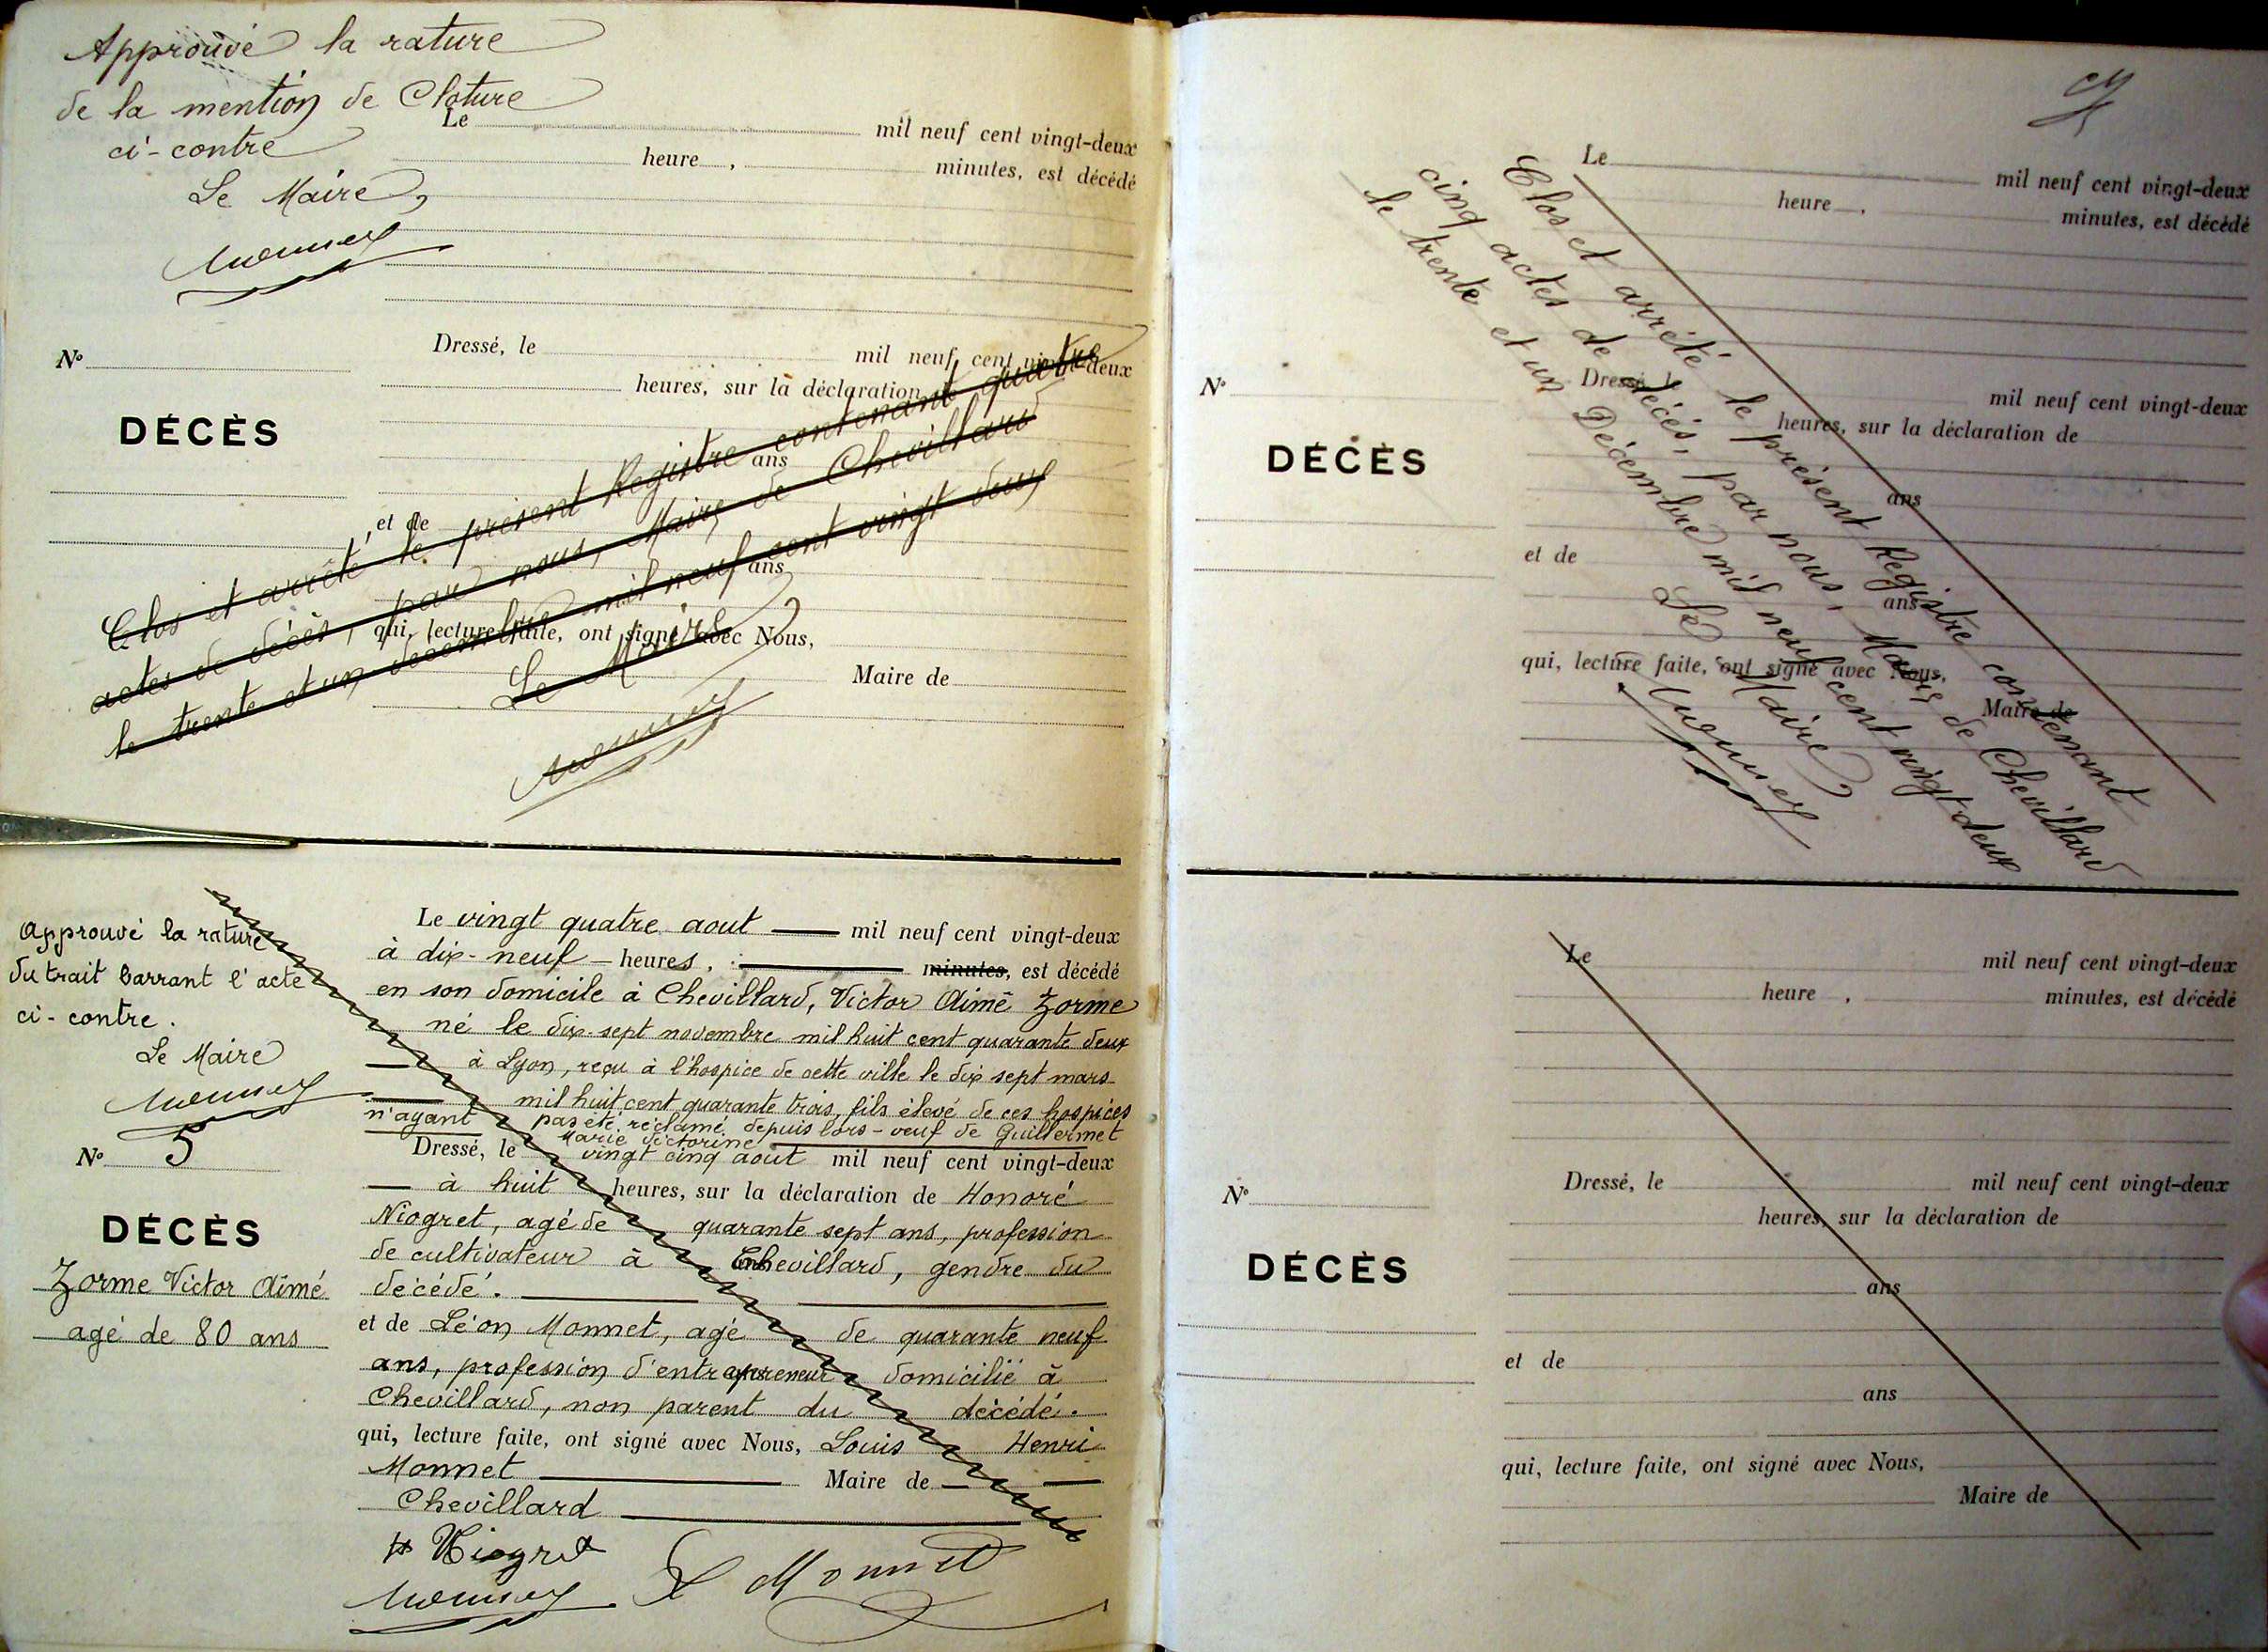 Approuvé la rature
de la mention de Cloture
ci-contre
Le Maire,
Le mil neuf cent vingt-deux
heure , minutes, est décédé
Dressé, le mil neuf cent vingt-deux
heures, sur la déclaration
ans
et de
ans
qui, lecture faite, ont signé avec Nous,
Maire de
N°
DÉCÈS
Clos et arrêté le présent Registre contenant quatre
actes de décès, par nous, Maire de Chevillard
le trente et un décembre mil neuf cent vingt deux
Le Maire
Approuvé la rature
du trait barrant l'acte
ci-contre.
Le Maire
N° 5
DÉCÈS
Zorme Victor Aimé
agé de 80 ans
Le vingt quatre aout mil neuf cent vingt-deux
à dix-neuf heures, minutes, est décédé
en son domicile à Chevillard, Victor Aimé Zorme
né le dix-sept novembre mil huit cent quarante deux
à Lyon, reçu à l'hospice de cette ville le dix sept mars
mil huit cent quarante trois, fils élevé de ces hospices
n'ayant pas été réclamé depuis lors - veuf de Guillermet
Marie Victorine
Dressé, le vingt cinq aout mil neuf cent vingt-deux
à huit heures, sur la déclaration de Honoré
Niogret, agé de quarante sept ans, profession
de cultivateur à Chevillard, gendre du
décédé.
et de Léon Monnet, agé de quarante neuf
ans, profession d'entrepreneur domicilié à
Chevillard, non parent du décédé.
qui, lecture faite, ont signé avec Nous, Louis Henri
Monnet Maire de
Chevillard
Niogret
L Monnet
Le mil neuf cent vingt-deux
heure , minutes, est décédé
Dressé, le mil neuf cent vingt-deux
heures, sur la déclaration de
ans
et de
ans
qui, lecture faite, ont signé avec Nous,
Maire de
N°
DÉCÈS
Clos et arrêté le présent Registre contenant
cinq actes de décès, par nous, Maire de Chevillard
le trente et un Décembre mil neuf cent vingt deux
Le Maire
Le mil neuf cent vingt-deux
heure , minutes, est décédé
N°
DÉCÈS
Dressé, le mil neuf cent vingt-deux
heures, sur la déclaration de
ans
et de
ans
qui, lecture faite, ont signé avec Nous,
Maire de